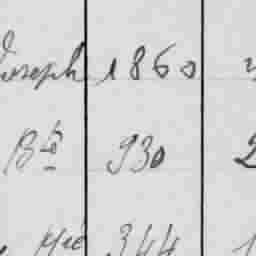 Joseph 1860
Bte 930 2
344 1